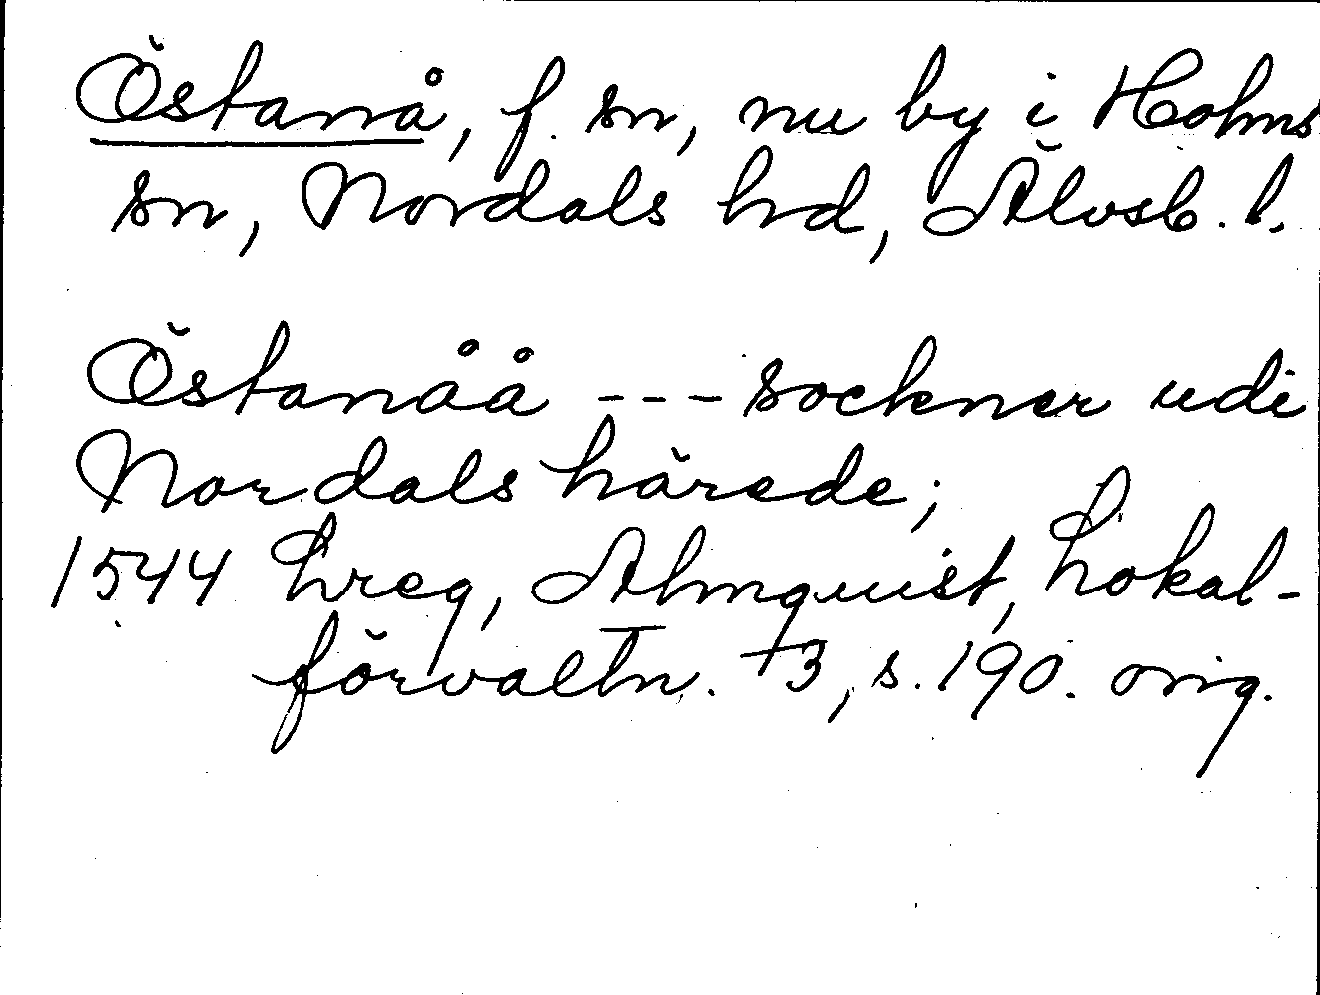 Östanå, f. sn, nu by i Holms
sn, Nordals hd, Älvsb. l.
Östanåå --- sockner udi
Nordals härede;
1544 Lreg, Almquist, Lokal-
förvaltn. +3, s. 190. orig.